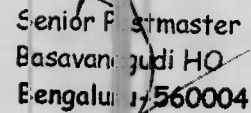 Senior Postmaster
Basavangudi HO
Bengaluru-560004